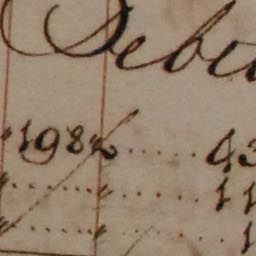 Debi
" 198 2 ........ 43
" ........ " ........ 11
" ........ " ........ 1